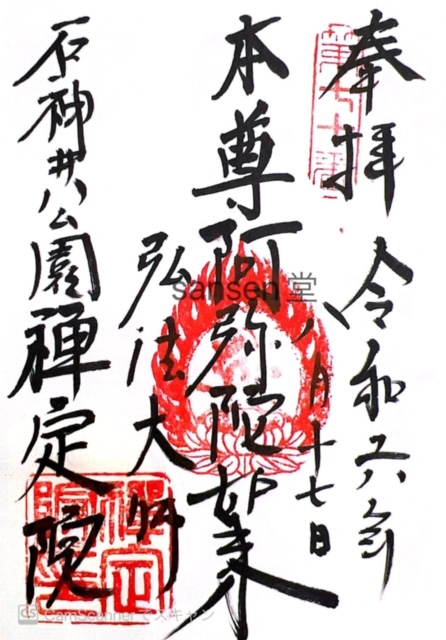 奉拝
令和六年
八月十七日
本尊阿弥陀如来
弘法大師
石神井公園禅定院
第七十番
禅定院
sansen堂
CS CamScanner でスキャン